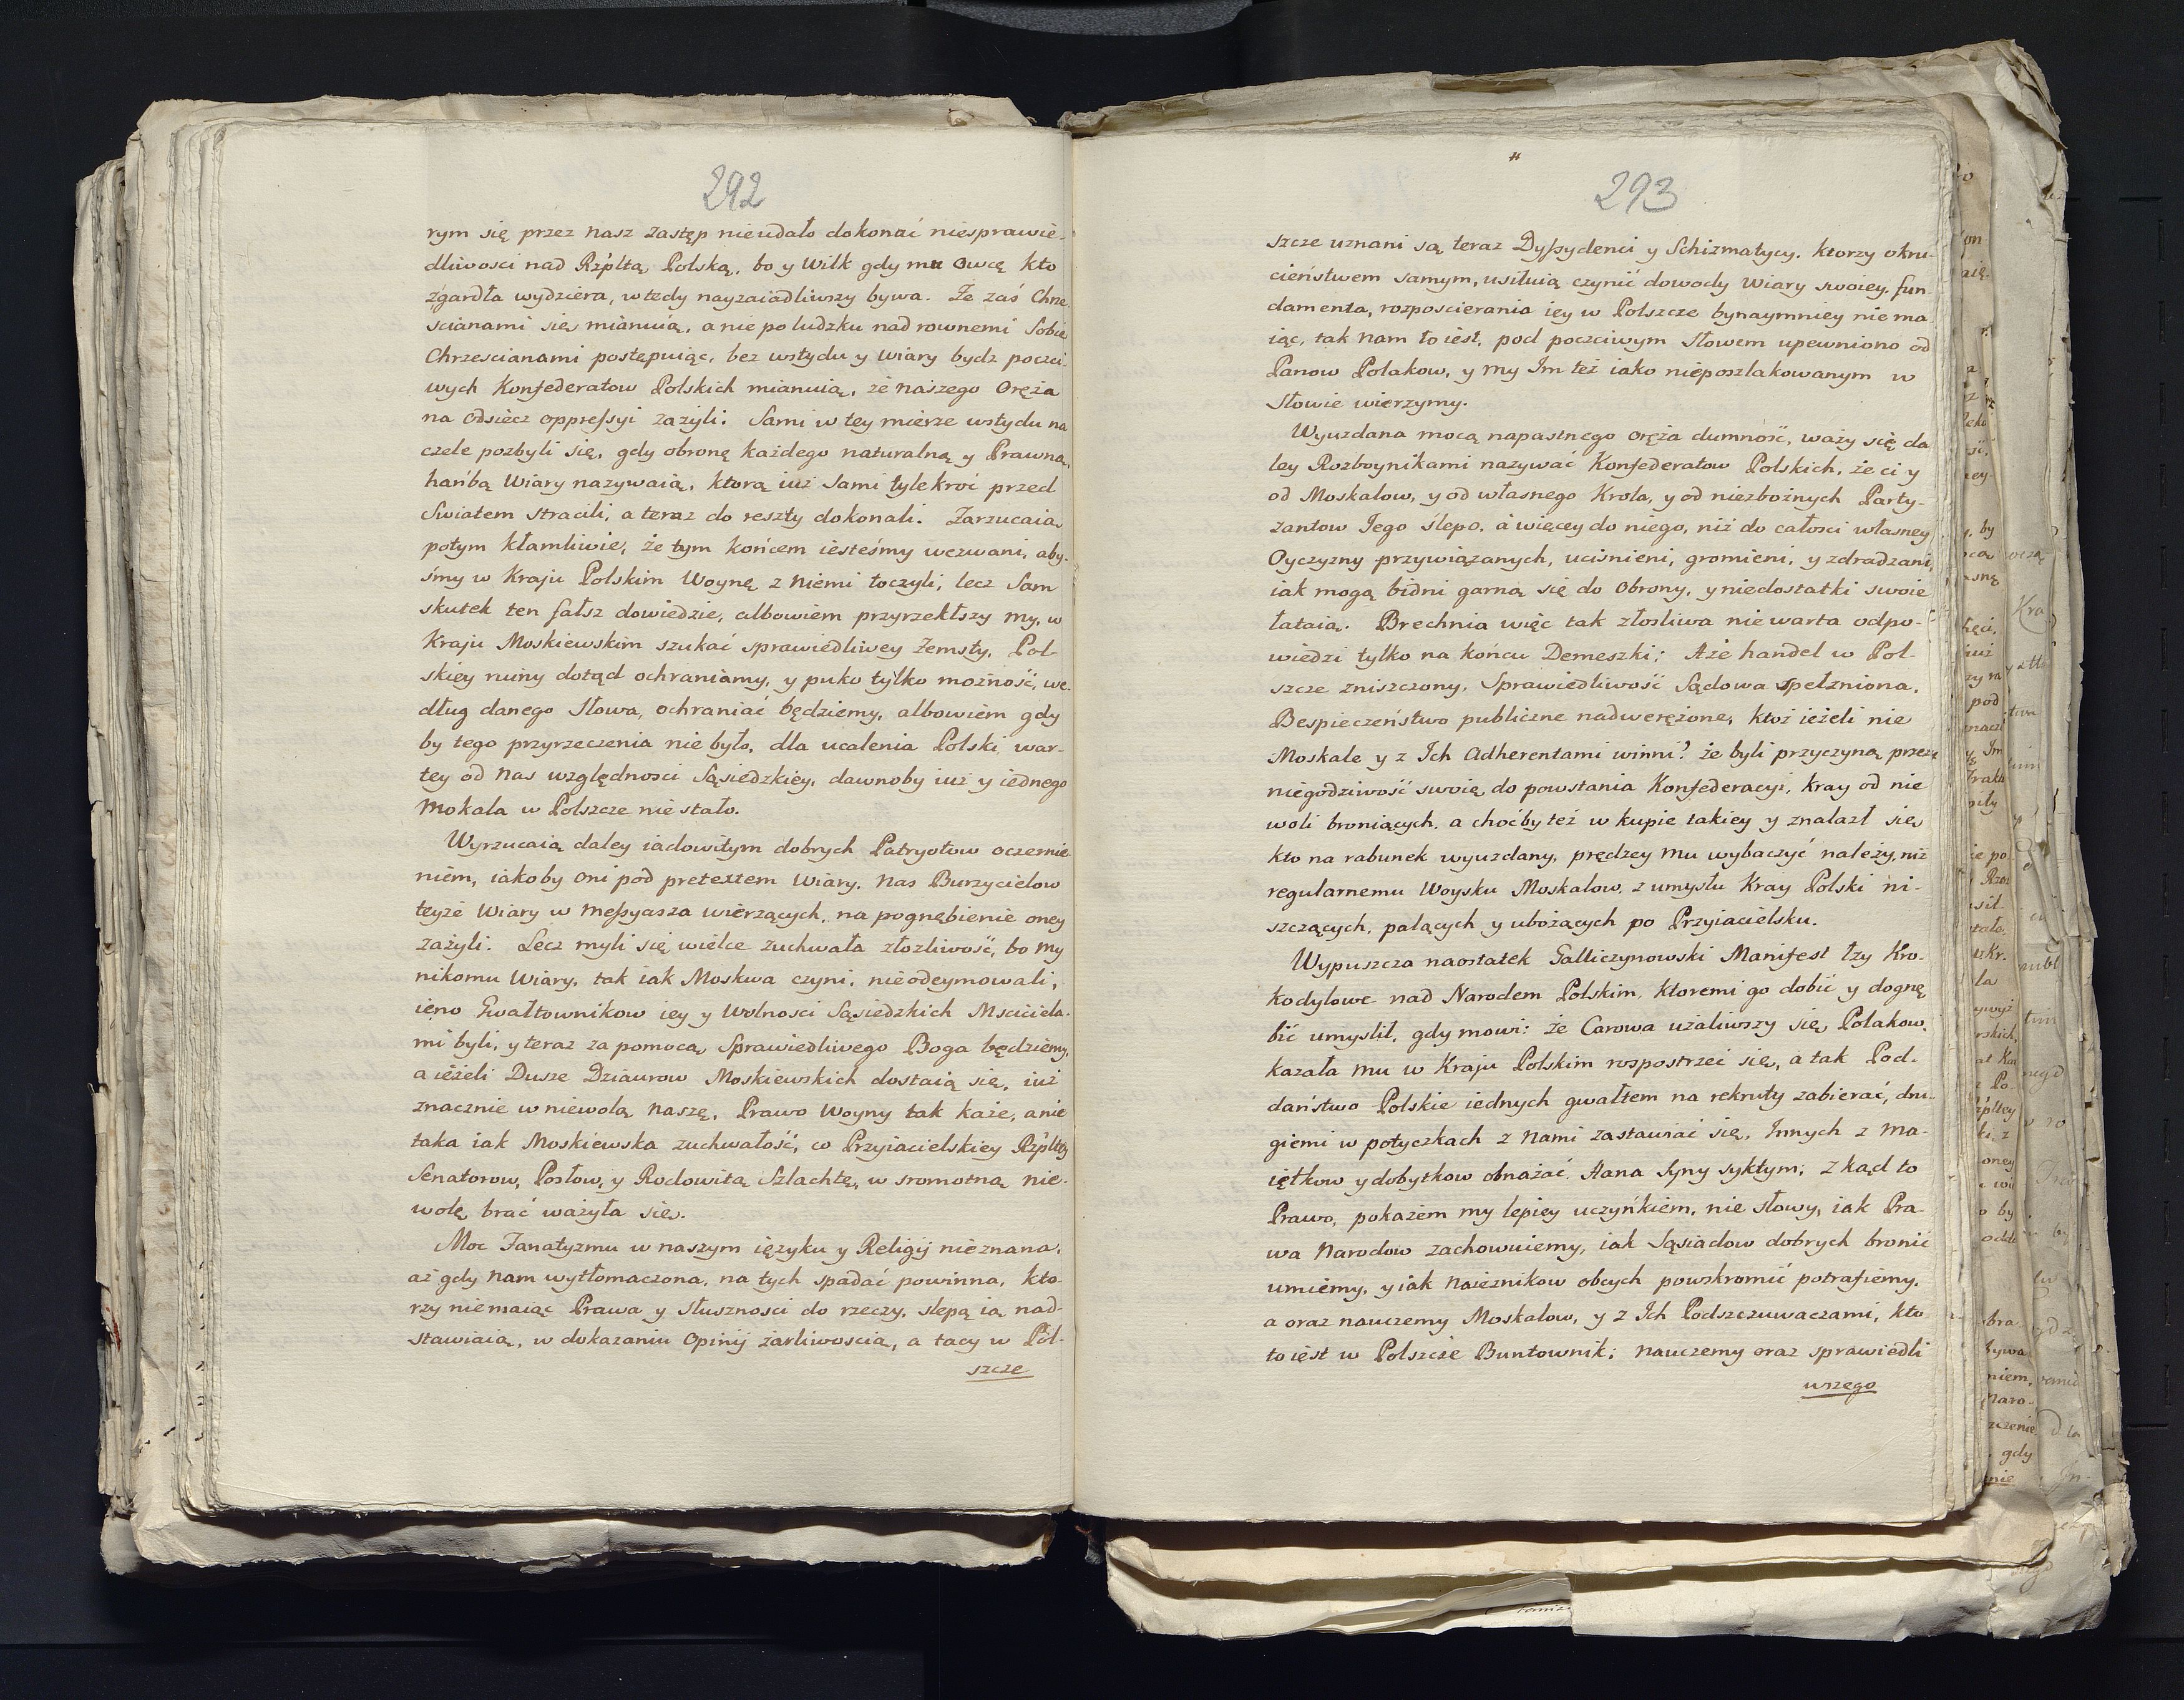 292
rym się przez nasz zastęp nieudało dokonać niesprawie-
dliwosci nad Rzpltą Polską, bo y Wilk gdy mu Owcę kto
zgardła wydziera, wtedy nayzaiadliwszy bywa. Że zaś Chrze-
scianami się mianuią, a nie po ludzku nad rownemi Sobie
Chrzescianami postępuiąc, bez wstydu y Wiary bydz poczci-
wych Konfederatow Polskich mianuią, że naszego Oręża
na Odsiecz oppressyi zażyli. Sami w tey mierze wstydu na
czele pozbyli się, gdy obronę każdego naturalną y Prawną,
hańbą Wiary nazywaią, ktorą iuż Sami tylekroć przed
Swiatem stracili, a teraz do reszty dokonali. Zarzucaią
potym kłamliwie, że tym końcem iesteśmy wezwani, aby-
śmy w Kraju Polskim Woynę z Niemi toczyli, lecz Sam
skutek ten fałsz dowiedzie, albowiem przyrzekłszy my, w
Kraju Moskiewskim szukać sprawiedliwey Zemsty, Pol-
skiey ruiny dotąd ochraniamy, y puko tylko możność, we-
dług danego Słowa, ochraniać będziemy, albowiem gdy
by tego przyrzeczenia nie było, dla ucalenia Polski, war-
tey od nas względnosci Sąsiedzkiey, dawnoby iuż y iednego
Mokala w Polszcze nie stało.
Wyrzucaią daley iadowitym dobrych Patryotow oczernie-
niem, iakoby oni pod pretextem Wiary, nas Burzycielow
teyże Wiary w Messyasza wierzących, na pognębienie oney
zażyli. Lecz myli się wielce zuchwała złozliwość, bo my
nikomu Wiary, tak iak Moskwa czyni, nieodeymowali,
ieno Gwałtownikow iey y Wolnosci Sąsiedzkich Mscicielа-
mi byli, y teraz za pomocą Sprawiedliwego Boga będziemy,
a ieżeli Dusze Dziaurow Moskiewskich dostaią się, iuż
znacznie w niewolą naszę, Prawo Woyny tak każe, a nie
taka iak Moskiewska zuchwałość, co Przyiacielskiey Rzpltey
Senatorow, Posłow, y Rodowitą Szlachtę, w sromotną nie-
wolę brać ważyła się.
Moc Fanatyzmu w naszym ięzyku y Religij nieznana,
aż gdy nam wytłomaczona, na tych spadać powinna, kto-
rzy niemaiąc Prawa y słusznosci do rzeczy, slepą ią nad-
stawiaią, w dokazaniu Opinij żarliwoscią, a tacy w Pol-
szcze
293
szcze uznani są teraz Dyssydenci y Schizmatycy, ktorzy okru-
cieństwem samym, usiłuią czynić dowody Wiary swoiey, fun-
damenta, rozposcierania iey w Polszcze bynaymniey nie ma
iąc, tak nam to iest, pod poczciwym Słowem upewniono od
Panow Polakow, y my Im też iako nieposzlakowanym w
Słowie wierzymy.
Wyuzdana mocą napastnego oręża dumność, waży się da
ley Rozboynikami nazywać Konfederatow Polskich, że ci y
od Moskalow, y od własnego Krola, y od niezbożnych Party-
zantow Jego ślepo, a więcey do niego, niż do całosci własney
Oyczyzny przywiązanych, ucisnieni, gromieni, y zdradzani,
iak mogą bidni garną się do Obrony, y niedostatki swoie
łataią. Brechnia więc tak złosliwa nie warta odpo-
wiedzi tylko na końcu Demeszki; Aże handel w Pol-
szcze zniszczony, Sprawiedliwość Sądowa spełzniona,
Bespieczeństwo publiczne nadwerężone, ktoż ieżeli nie
Moskale y z Ich Adherentami winni? że byli przyczyną przez
niegodziwość swoię do powstania Konfederacyi, kray od nie
woli broniących, a choćby też w kupie takiey y znalazł się
kto na rabunek wyuzdany, prędzey mu wybaczyć należy, niż
regularnemu Woysku Moskalow, z umysłu Kray Polski ni-
szczących, palących y ubożących po Przyiacielsku.
Wypuszcza naostatek Galliczynowski Manifest łzy Kro-
kodylowe nad Narodem Polskim, ktoremi go dobić y dognę
bić umyslił, gdy mowi: że Carowa użaliwszy się Polakow,
kazała mu w Kraju Polskim rospostrzeć się, a tak Pod-
daństwo Polskie iednych gwałtem na rekruty zabierać, dru-
giemi w potyczkach z nami zastawiać się, Innych z ma-
iętkow y dobytkow obnażać, Aana Syny syktym; zkąd to
Prawo, pokażem my lepiey uczyńkiem, nie słowy, iak Pra-
wa Narodow zachowuiemy, iak Sąsiadow dobrych bronić
umiemy, y iak naieznikow obcych powskromić potrafiemy,
a oraz nauczemy Moskalow, y z Ich Podszczuwaczami, kto
to iest w Polszcze Buntownik; nauczemy oraz sprawiedli
wszego